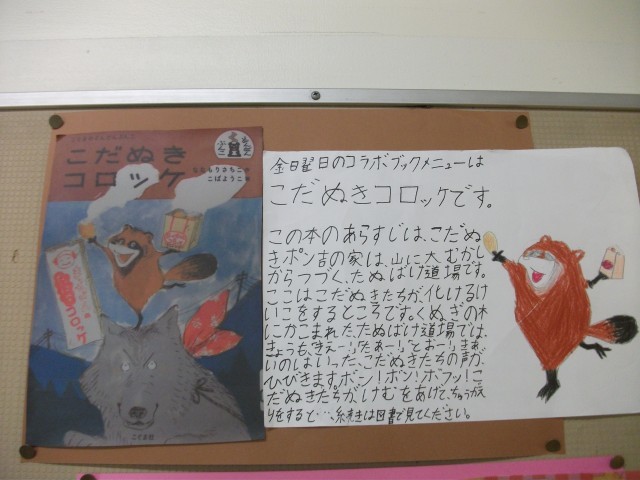 こだぬき
コロッケ
ななもりさちこ・作
こばようこ・絵
コロッケ
こぐま社
金日曜日のコラボブックメニューは
こだぬきコロッケです。
この本のあらすじは、こだぬ
きポン吉の家は、山に大むかし
からつづく、たぬばけ道場です。
ここはこだぬきたちが、化けるけ
いこをするところです。くぬぎの木
にかこまれた、たぬばけ道場では、
きょうも、「きえー!」「たあー!」「とおー!」
いのはいった、こだぬきたちの声が
ひびきます。ボン!ボン!ボフッ!こ
だぬきたちがけむをあげて、ちゅうがえ
りをすると…、続きは図書で見てください。